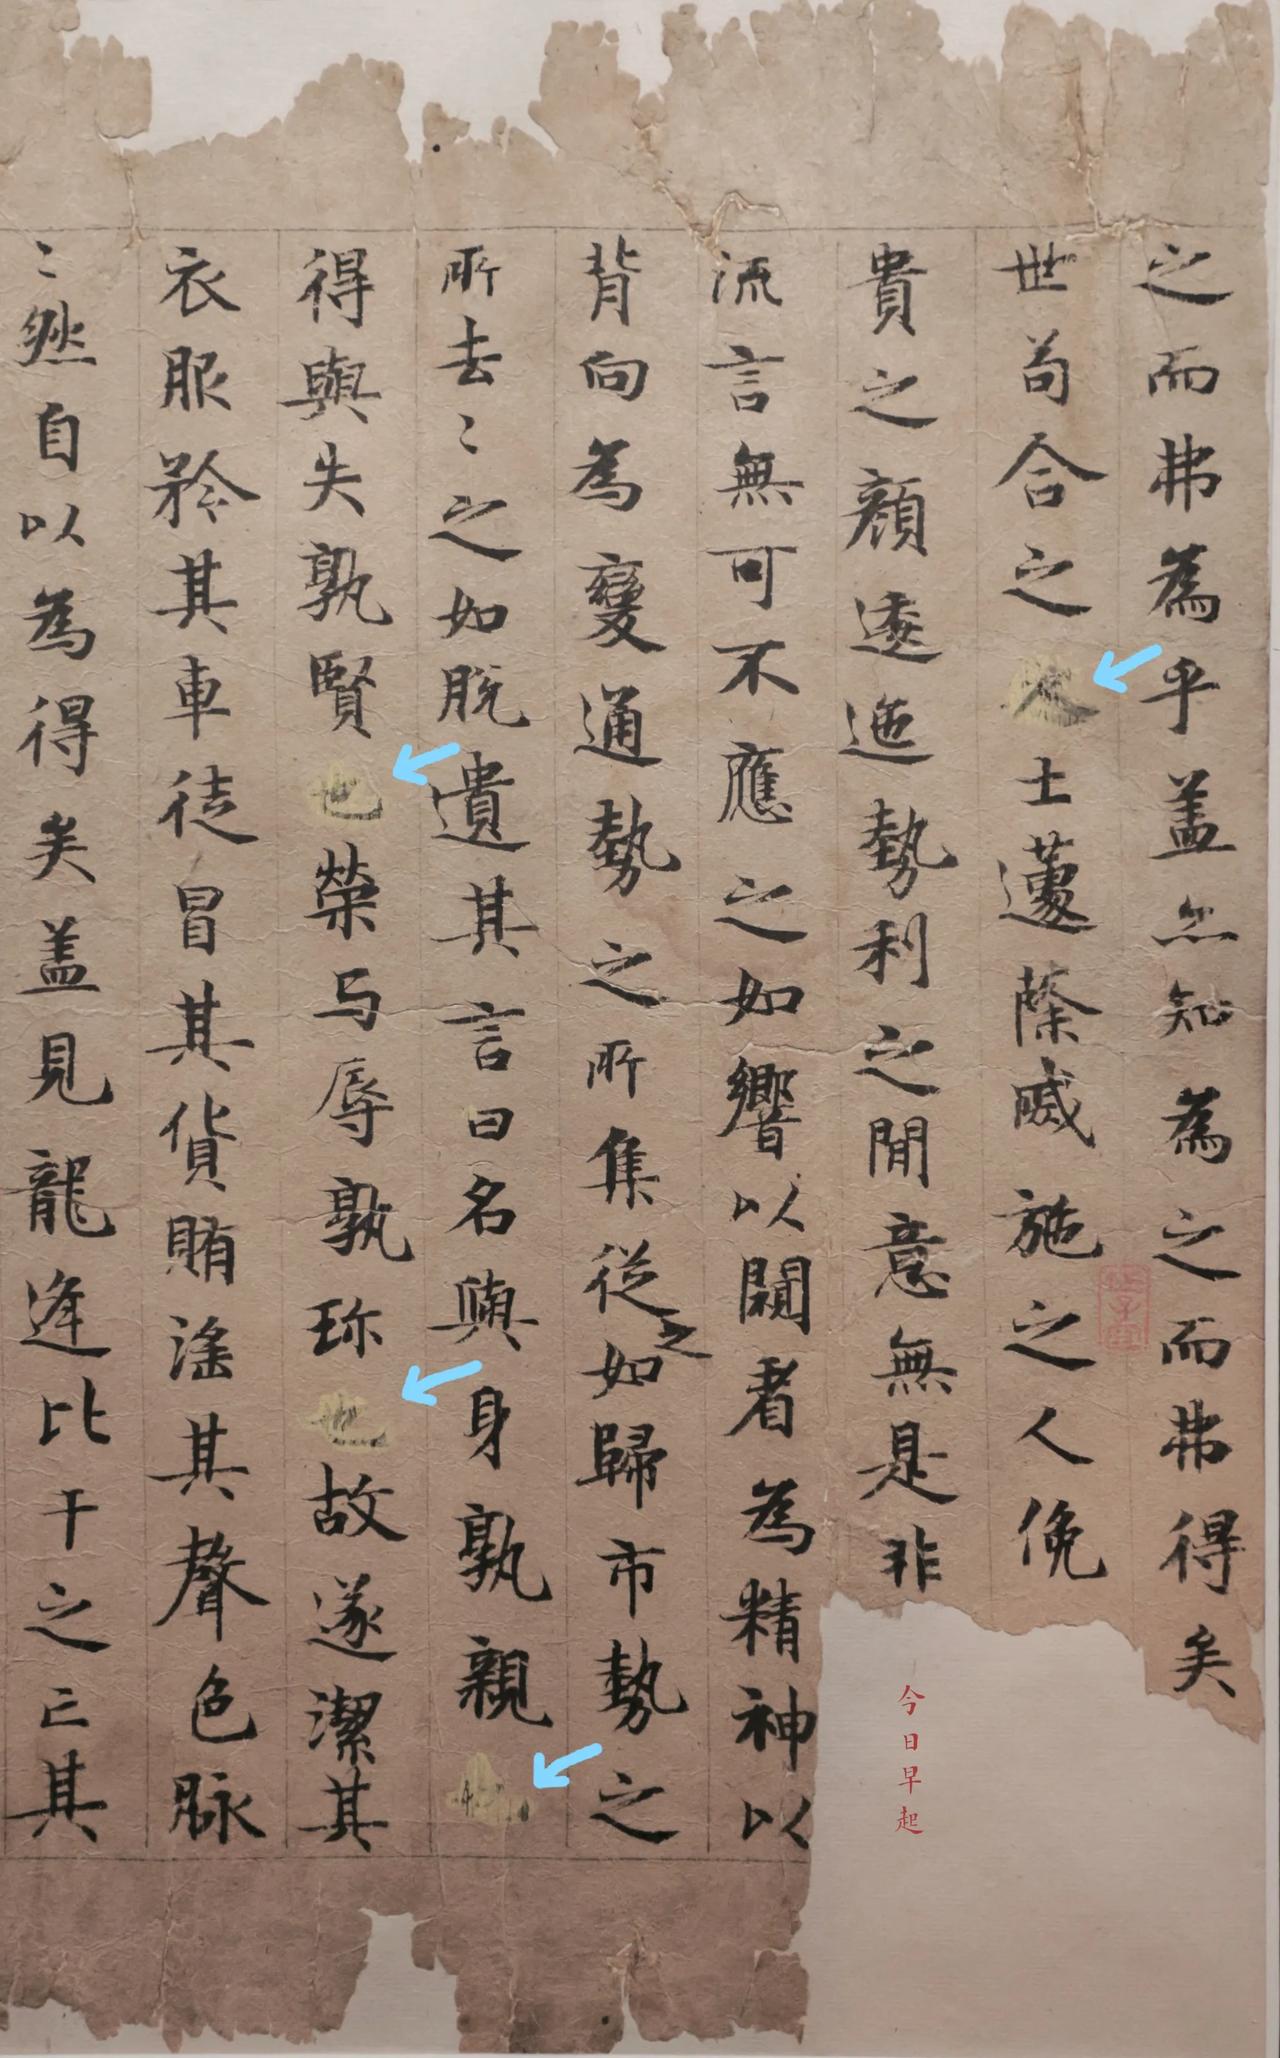 之而弗為乎盖亦知為之而弗得矣
世苟合之人士蘧蒢戚施之人俛
貴之顔逶迤勢利之間意無是非
流言無可不應之如響以闚者為精神以
背向為變通勢之所集從之如歸市勢之
所去〻之如脱遺其言曰名與身孰親也
得與失孰賢也榮与辱孰珎也故遂潔其
衣服矜其車徒冒其貨賄淫其聲色脉
〻然自以為得矣盖見龍逄比干之亡其
今日早起